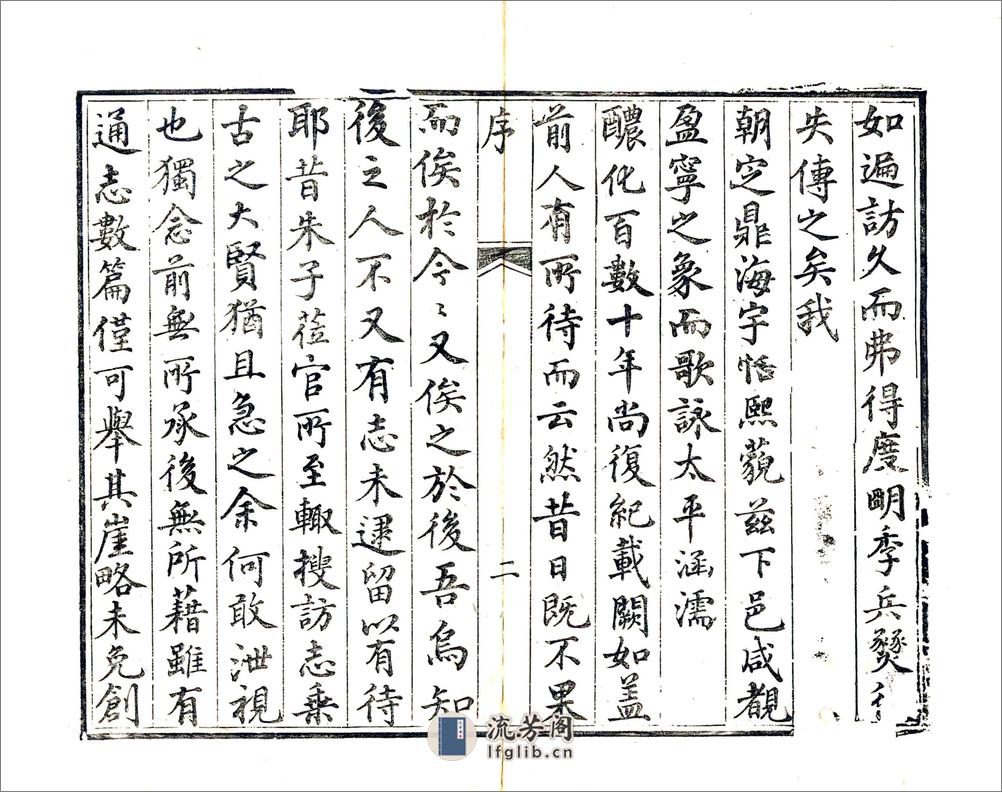 如遍訪久而弗得度明季兵燹
失傳之矣我
朝定鼎海宇恬熙藐茲下邑咸覩
盈寧之象而歌詠太平涵濡
醲化百數十年尚復紀載闕如盖
前人有所待而云然昔日既不果
序
二
而俟於今〻又俟之於後吾烏知
後之人不又有志未逮留以有待
耶昔朱子莅官所至輙搜訪志乗
古之大賢猶且急之余何敢泄視
也獨念前無所承後無所藉雖有
通志數篇僅可舉其崖略未免創
流芳阁
lfglib.cn